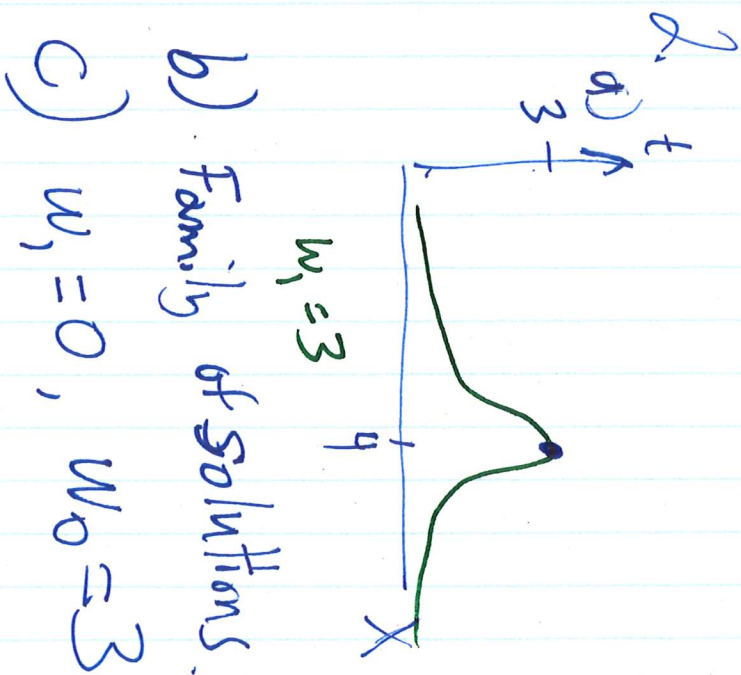 2.
a) t
3
4
X
w₁ = 3
b) Family of Solutions.
c) w₁ = 0, w₀ = 3